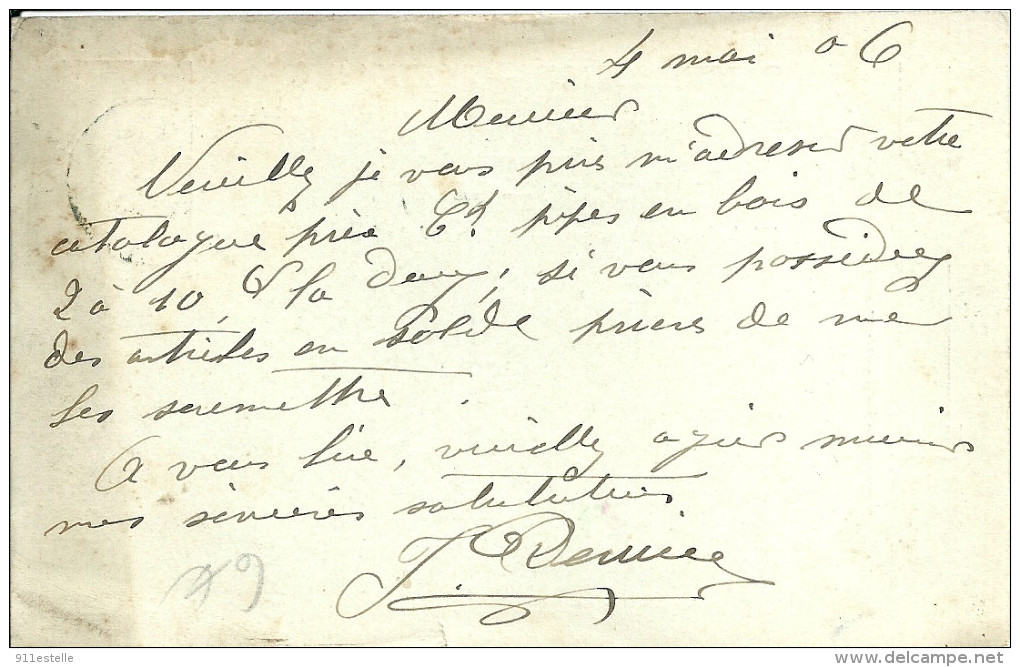 4 mai 06
Monsieur
Veuillez je vous prie m'adresser votre
catalogue prix Ct pipes en bois de
2 à 10, la douz, si vous possédez
des articles en solde prière de me
les soumettre.
A vous lire, veuillez agréer
mes sincères salutations
J.
69
911estelle
www.delcampe.net